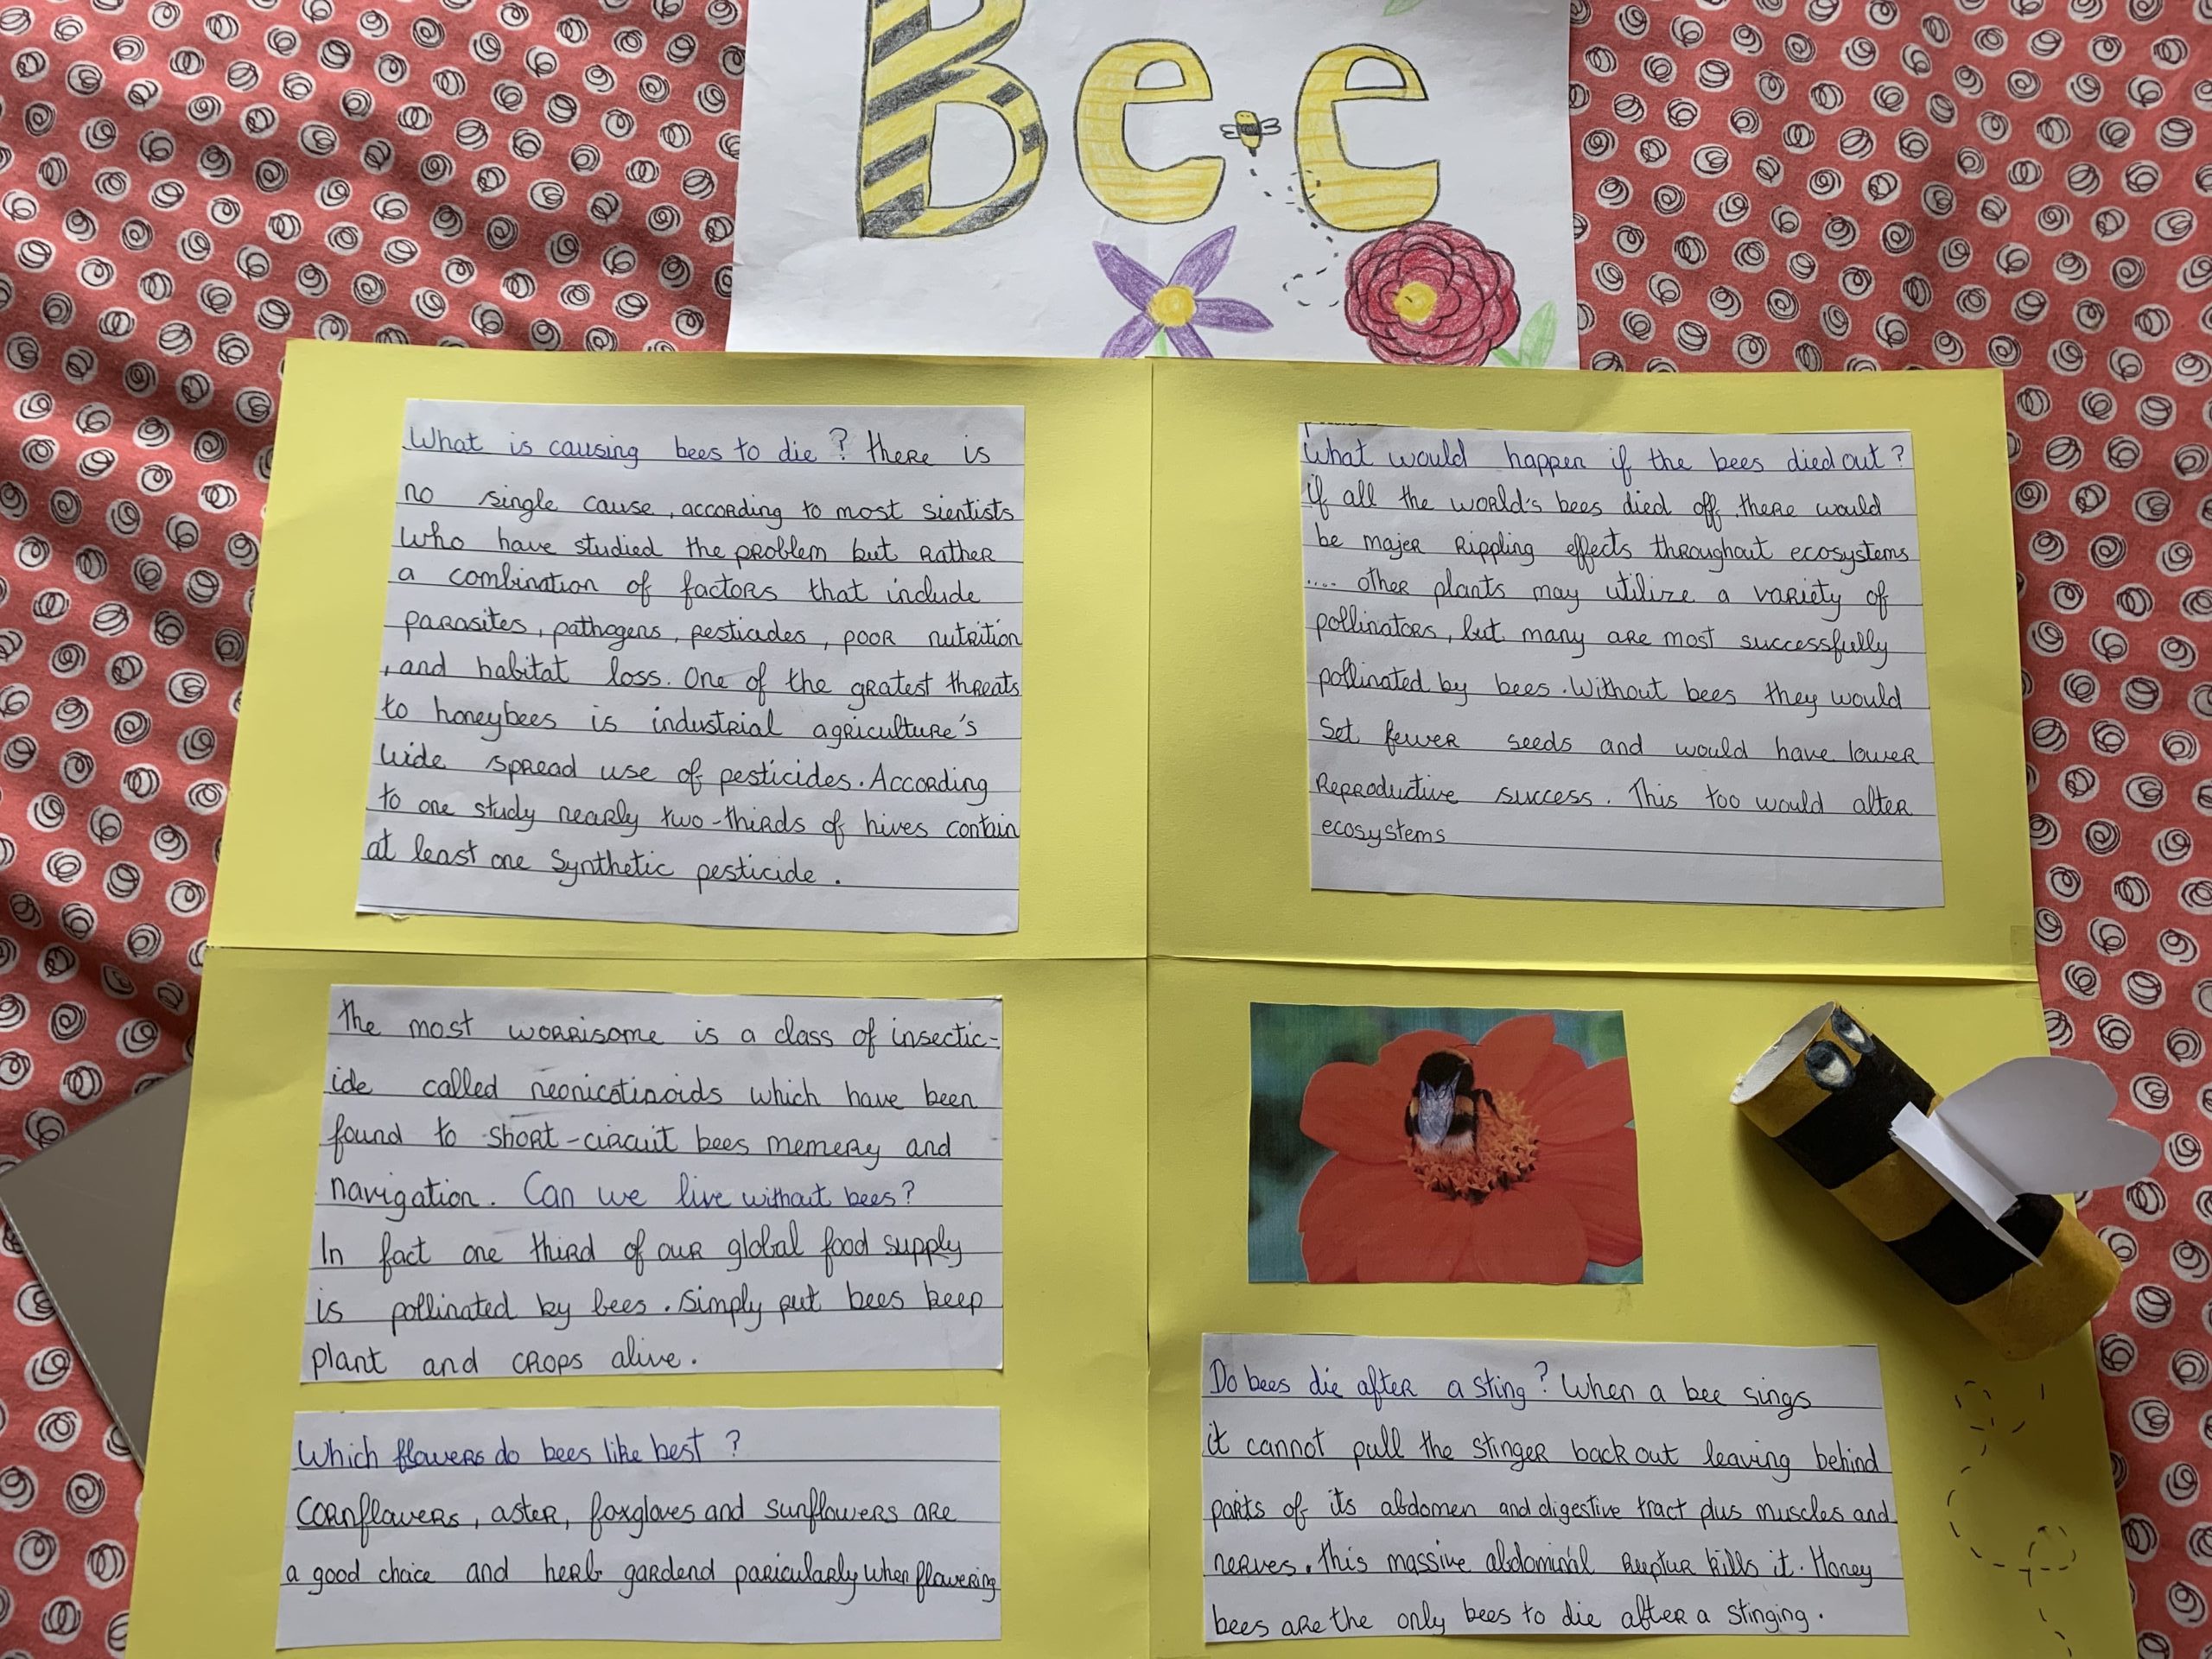 Bee
What is causing bees to die? there is
no single cause, according to most sientists
who have studied the problem but rather
a combination of factors that include
parasites, pathogens, pesticides, poor nutrition
, and habitat loss. One of the gratest threats
to honeybees is industrial agriculture's
wide spread use of pesticides. According
to one study nearly two-thirds of hives contain
at least one synthetic pesticide.
What would happen if the bees died out?
if all the world's bees died off there would
be majer rippling effects throughout ecosystems
.... other plants may utilize a variety of
pollinators, but many are most successfully
pollinated by bees. Without bees they would
set fewer seeds and would have lower
Reproductive success. This too would alter
ecosystems
the most worrisome is a class of insectic-
ide called neonicotinoids which have been
found to short-circuit bees memery and
navigation. Can we live without bees?
In fact one third of our global food supply
is pollinated by bees. simply put bees keep
plant and crops alive.
Which flowers do bees like best?
cornflowers, aster, foxgloves and sunflowers are
a good choice and herb gardend paricularly when flowering
Do bees die after a sting? When a bee sings
it cannot pull the stinger back out leaving behind
parts of its abdomen and digestive tract plus muscles and
nerves. this massive abdominal kills it. Honey
bees are the only bees to die after a stinging.